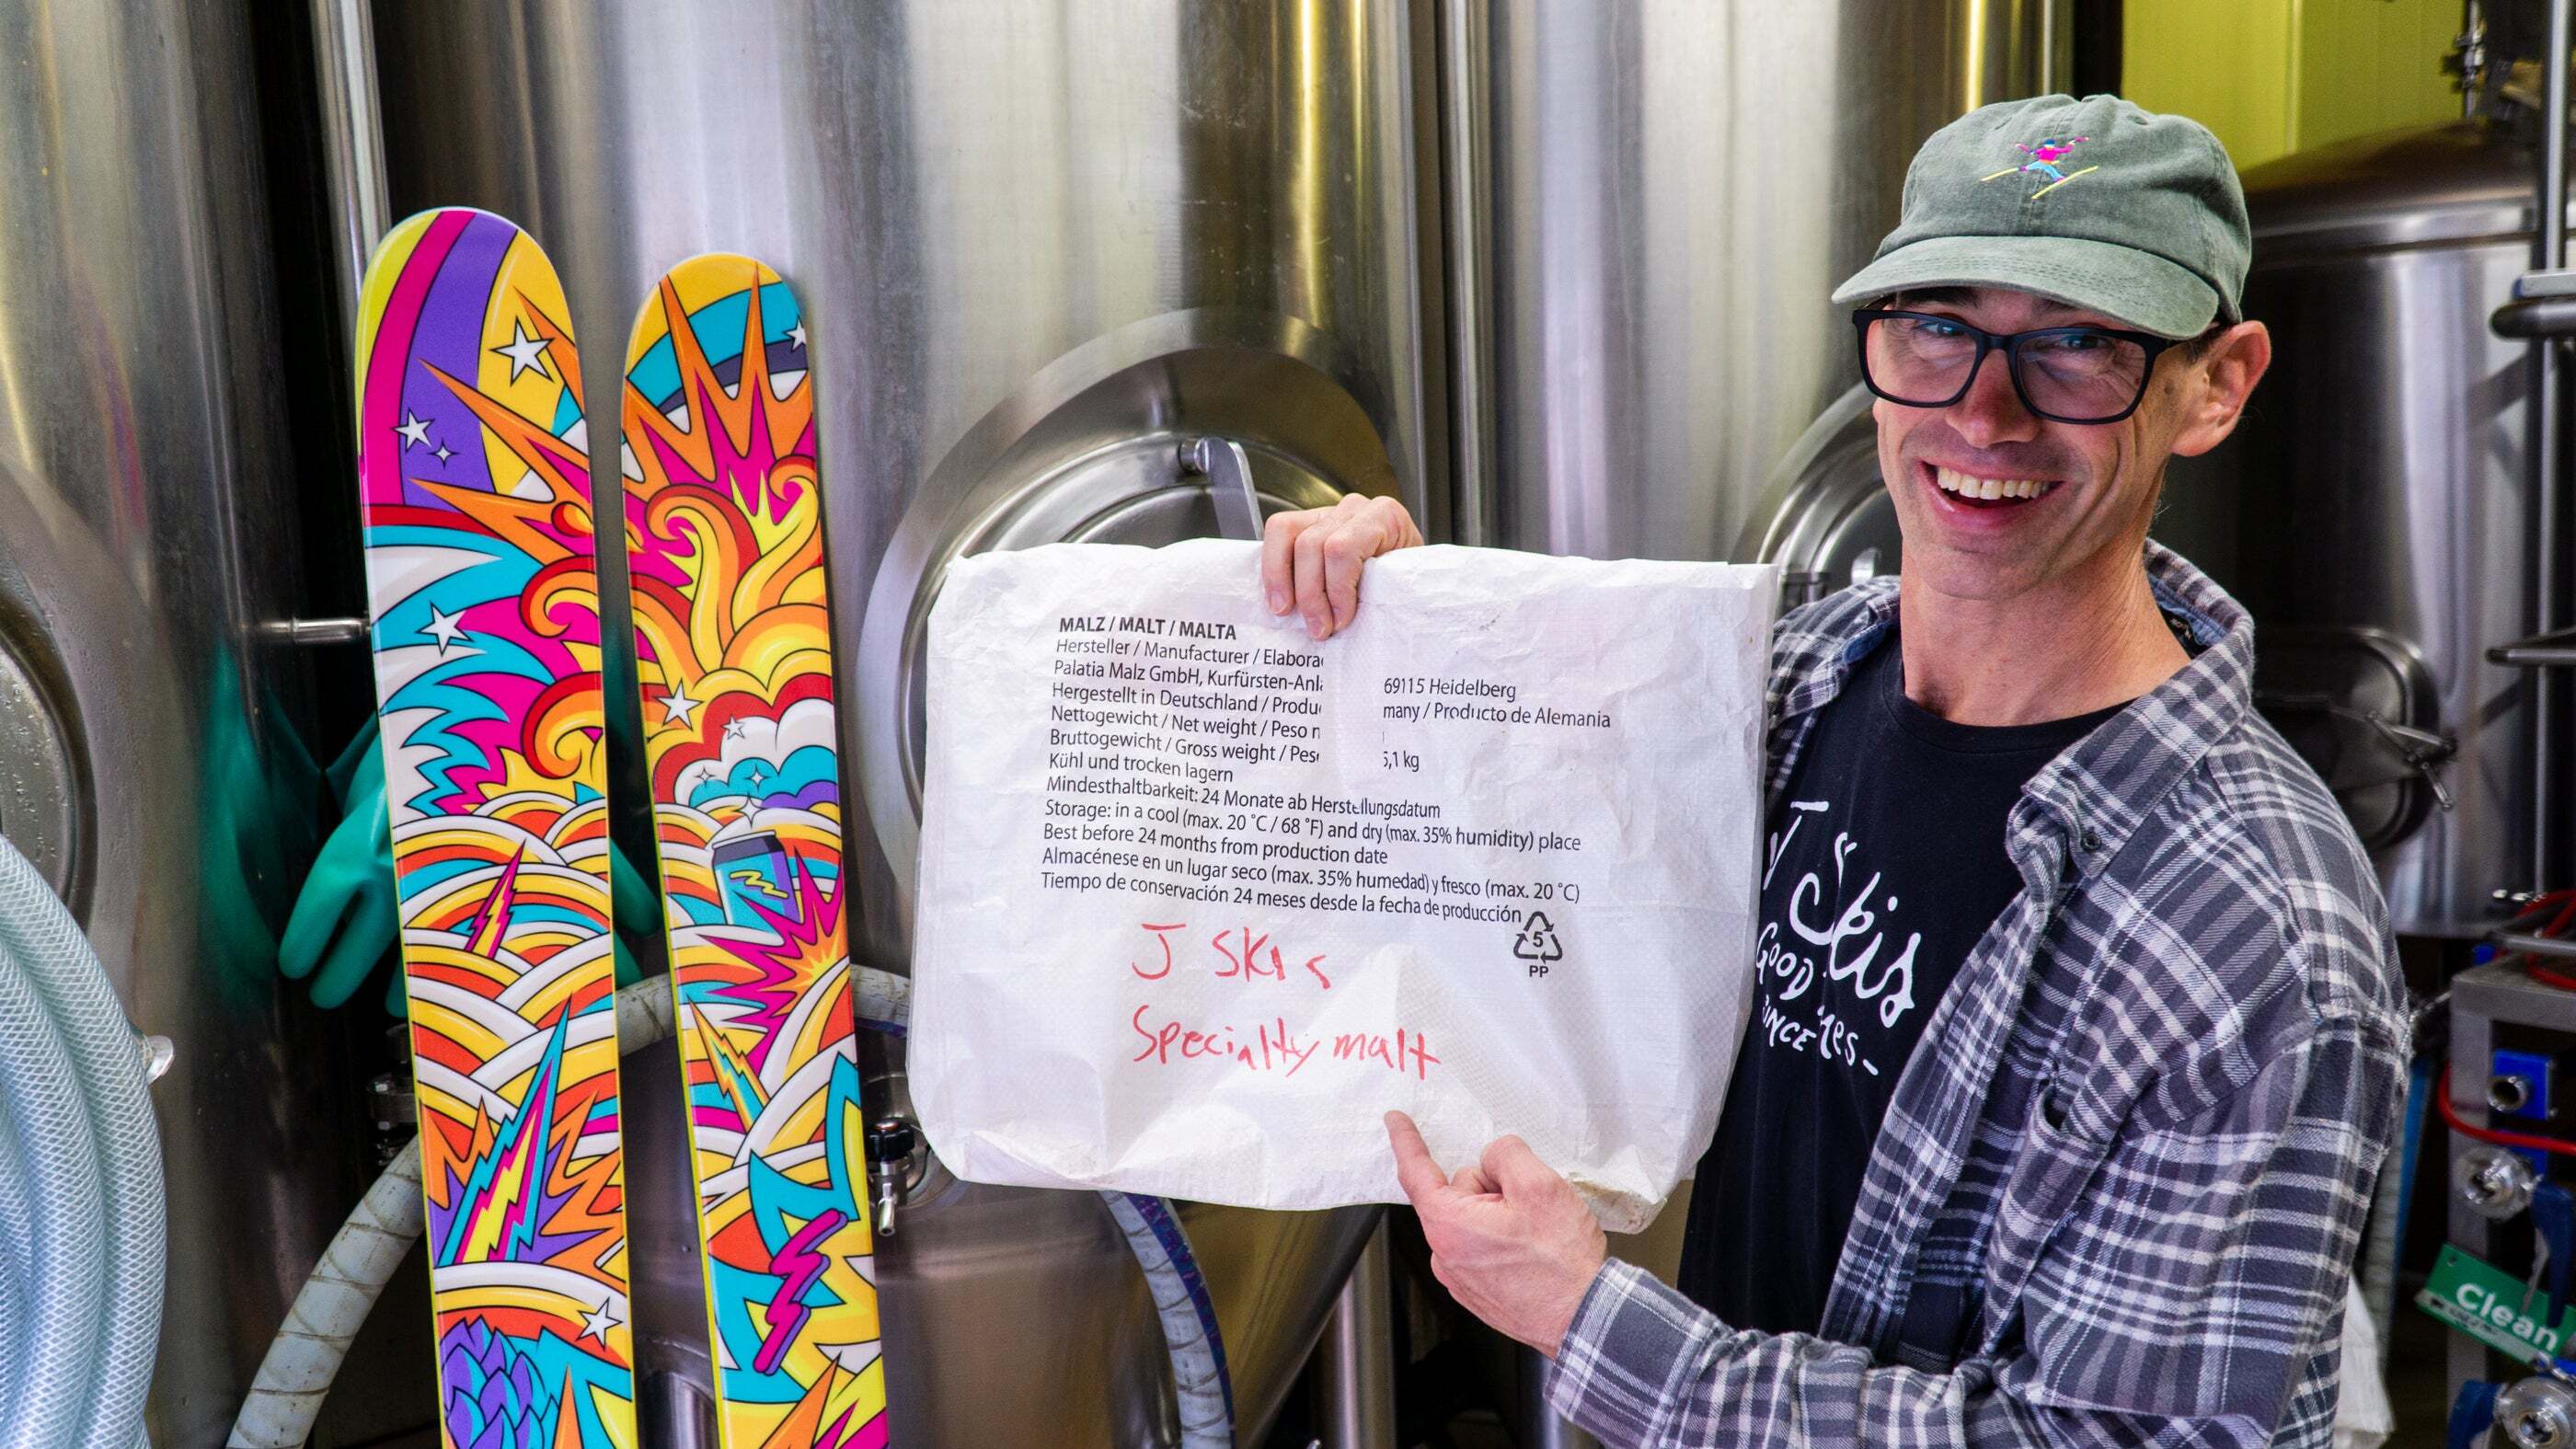 MALZ / MALT / MALTA
Hersteller / Manufacturer /
Palatia Malz GmbH, 69115 Heidelberg
Hergestellt in Deutschland / / Producto de Alemania
Nettogewicht / Net weight / Peso
Bruttogewicht / Gross weight / kg
Kühl und trocken lagern
Mindesthaltbarkeit: 24 Monate ab Herstellungsdatum
Storage: in a cool (max. 20 °C / 68 °F) and dry (max. 35% humidity) place
Best before 24 months from production date
Almacénese en un lugar seco (max. 35% humedad) y fresco (max. 20 °C)
Tiempo de conservación 24 meses desde la fecha de producción
5
PP
J SKIS
Specialty malt
J Skis
GOOD
SINCE
Clean